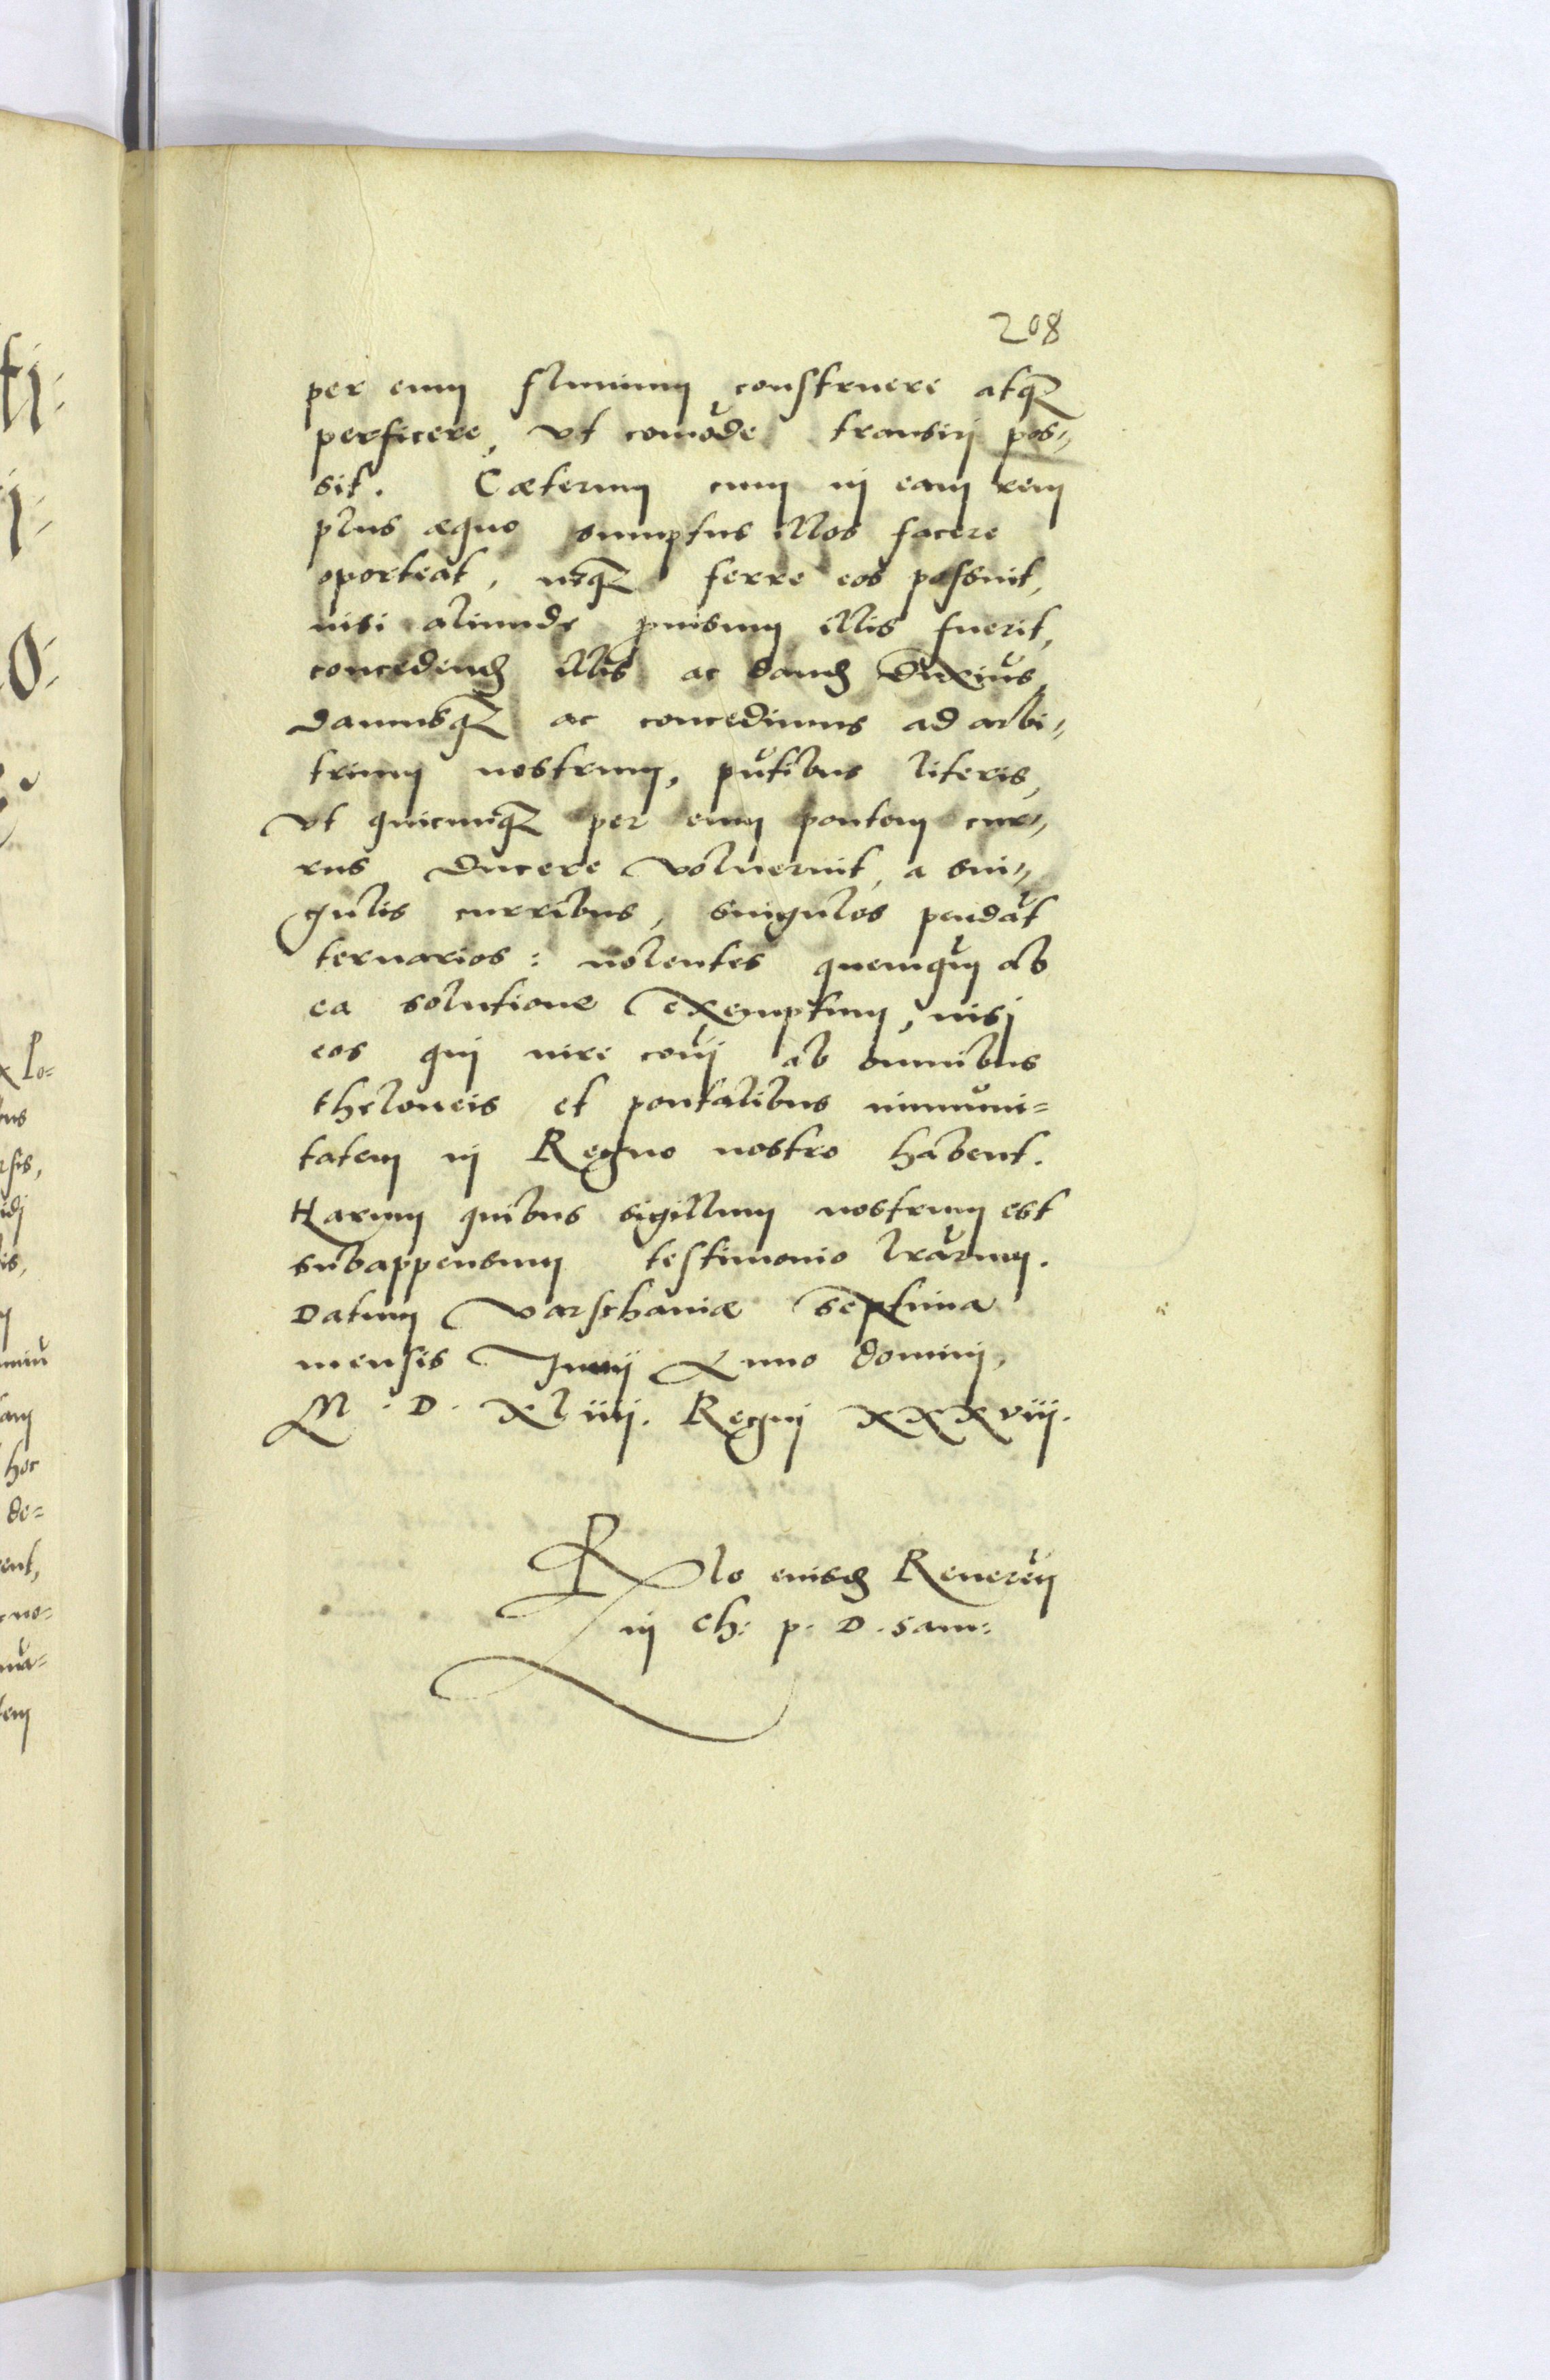 208
per eum fluuium construere atq(ue)
perficere, vt comode transirj pos-
sit. Cæterum cum in eam rem
plus æquo sumptus illos facere
oporteat, neq(ue) ferre eos possint,
nisi aliunde puisum illis fuerit,
concedend illis ac dand duximus,
damusq(ue) ac concedimus ad arbi-
trium nostrum, pntibus literis,
vt quicunq(ue) per eum pontem cur-
rus ducere voluerint, a sin-
gulis curribus, singulos pendat
ternarios: nolentes quemqm ab
ea solutione exemptum, nisj
eos quj iure coi ab omnibus
theloneis et pontalibus immuni-
tatem in Regno nostro habent.
Harum quibus sigillum nostrum est
subappensum testimonio lrarum.
Datum Varschauiæ septima
mensis Junij Anno dominj,
M. D. XLiiij. Regnj XXXviij.
Rlo eiusd Reueren
in Ch: p. D. Sam: